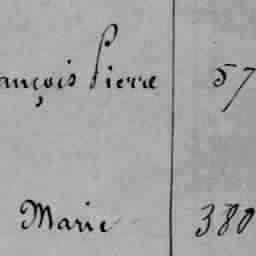 ançois Pierre 57
Marie 380